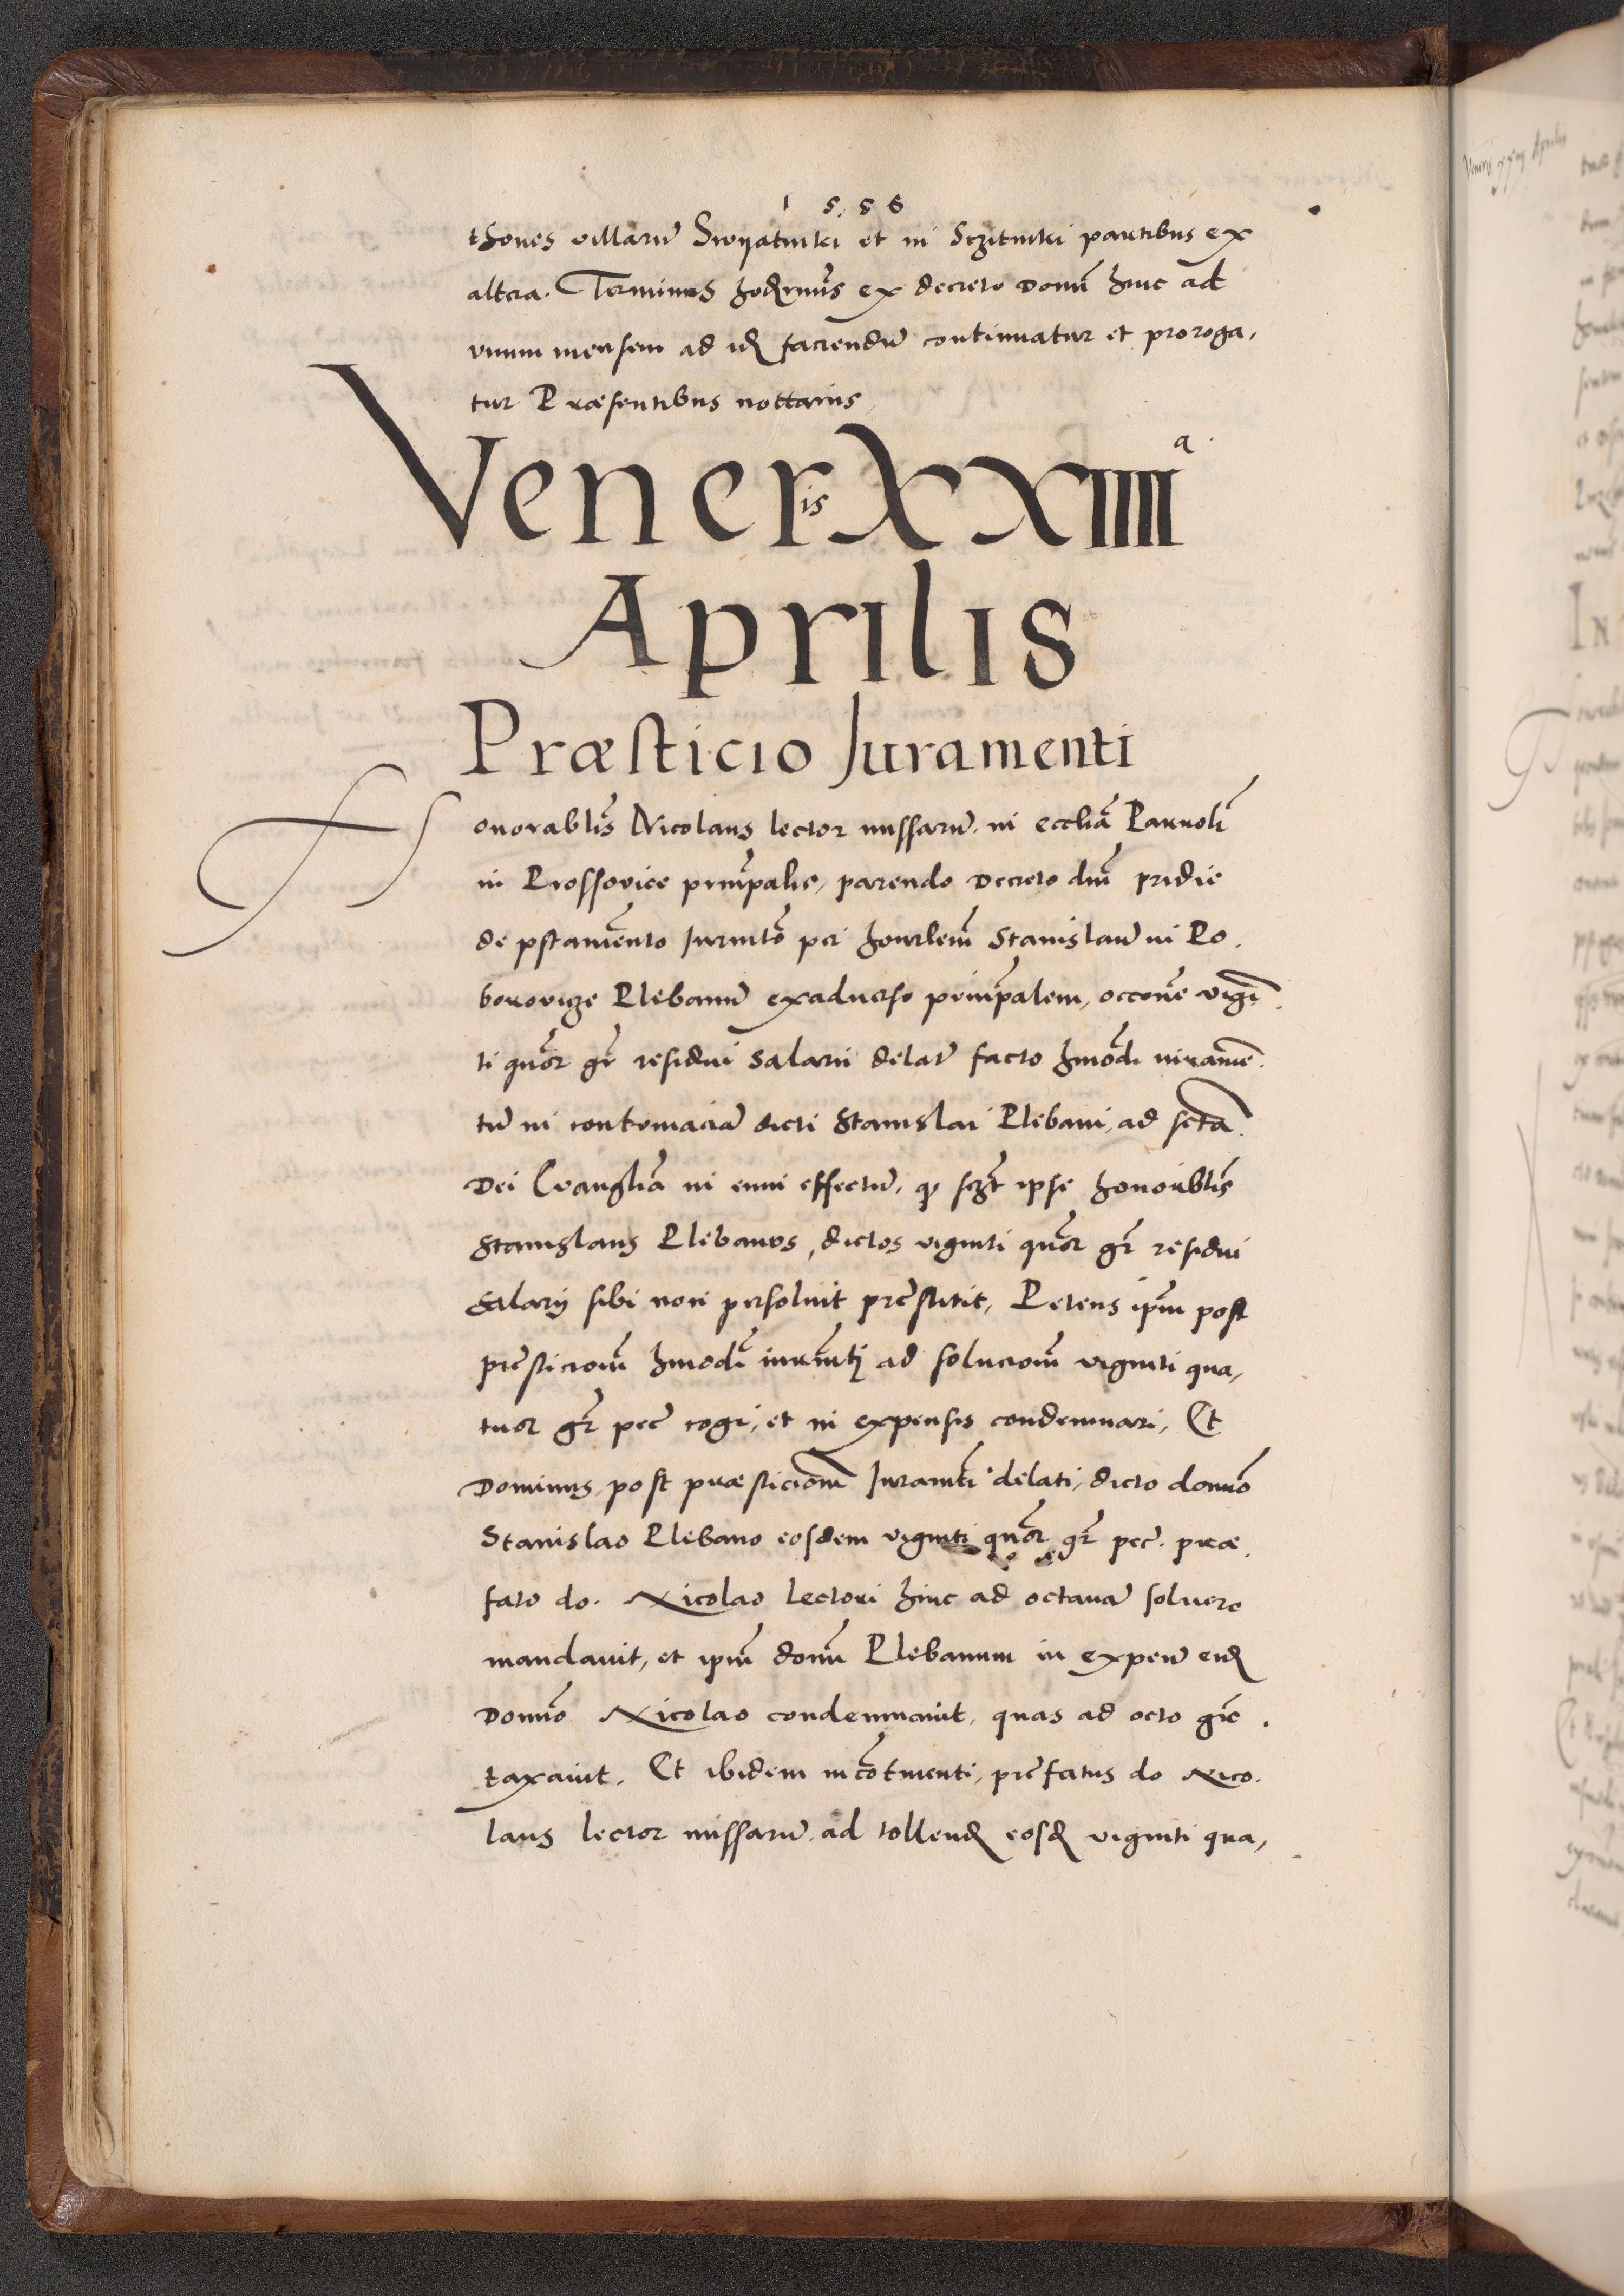 1 5. 5 6
thones villarũ Swyatniki et in Sczitniki partibus ex
altera. Terminus hodiernũs ex decreto Domĩ hinc ad
vnum mensem ad id faciendũ continuatur et proroga,
tur Præsentibus nottariis
Veneris XXIIII a
Aprilis
Præsticio Juramenti
Honorablĩs Nicolaus lector missarũ in ecclĩa Parrolĩ
in Prossovice principalis, parendo Decreto dnĩ pridie
de pstamento Jurmto per honrlem Stanislaũ in Po.
borovicze Plebanũ exaduerso principalem, occone vigĩ
ti quõr gr residui salarii delatũ facto hmõdi iuramẽ.
tũ in contumaciã dicti Stanislai Plebani, ad sctã
Dei Evanglĩa in eum effectũ, q sczt ipse honorablĩs
Stanislaus Plebanus, dictos viginti quõr gr residui
Salarij sibi non persoluit prestitit, Petens ipm post
presticiom hmodi iurmti ad soluciom viginti qua,
tuor gr pec cogi, et in expensis condemnari, Et
Dominus, post præsticiom Juramti delati, dicto domno
Stanislao Plebano eosdem viginti quõr gr pec. præ.
fato do. Nicolao Lectori hinc ad octauã soluere
mandauit, et ipm domĩ Plebanum in expeñ eid
Domno Nicolao condemnauit, quas ad octo gr.
taxauit. Et ibidem incotinenti, prefatus do Nico.
laus lector missarũ ad tollend eosd viginti qua,
Veneris xxiiij Aprilis